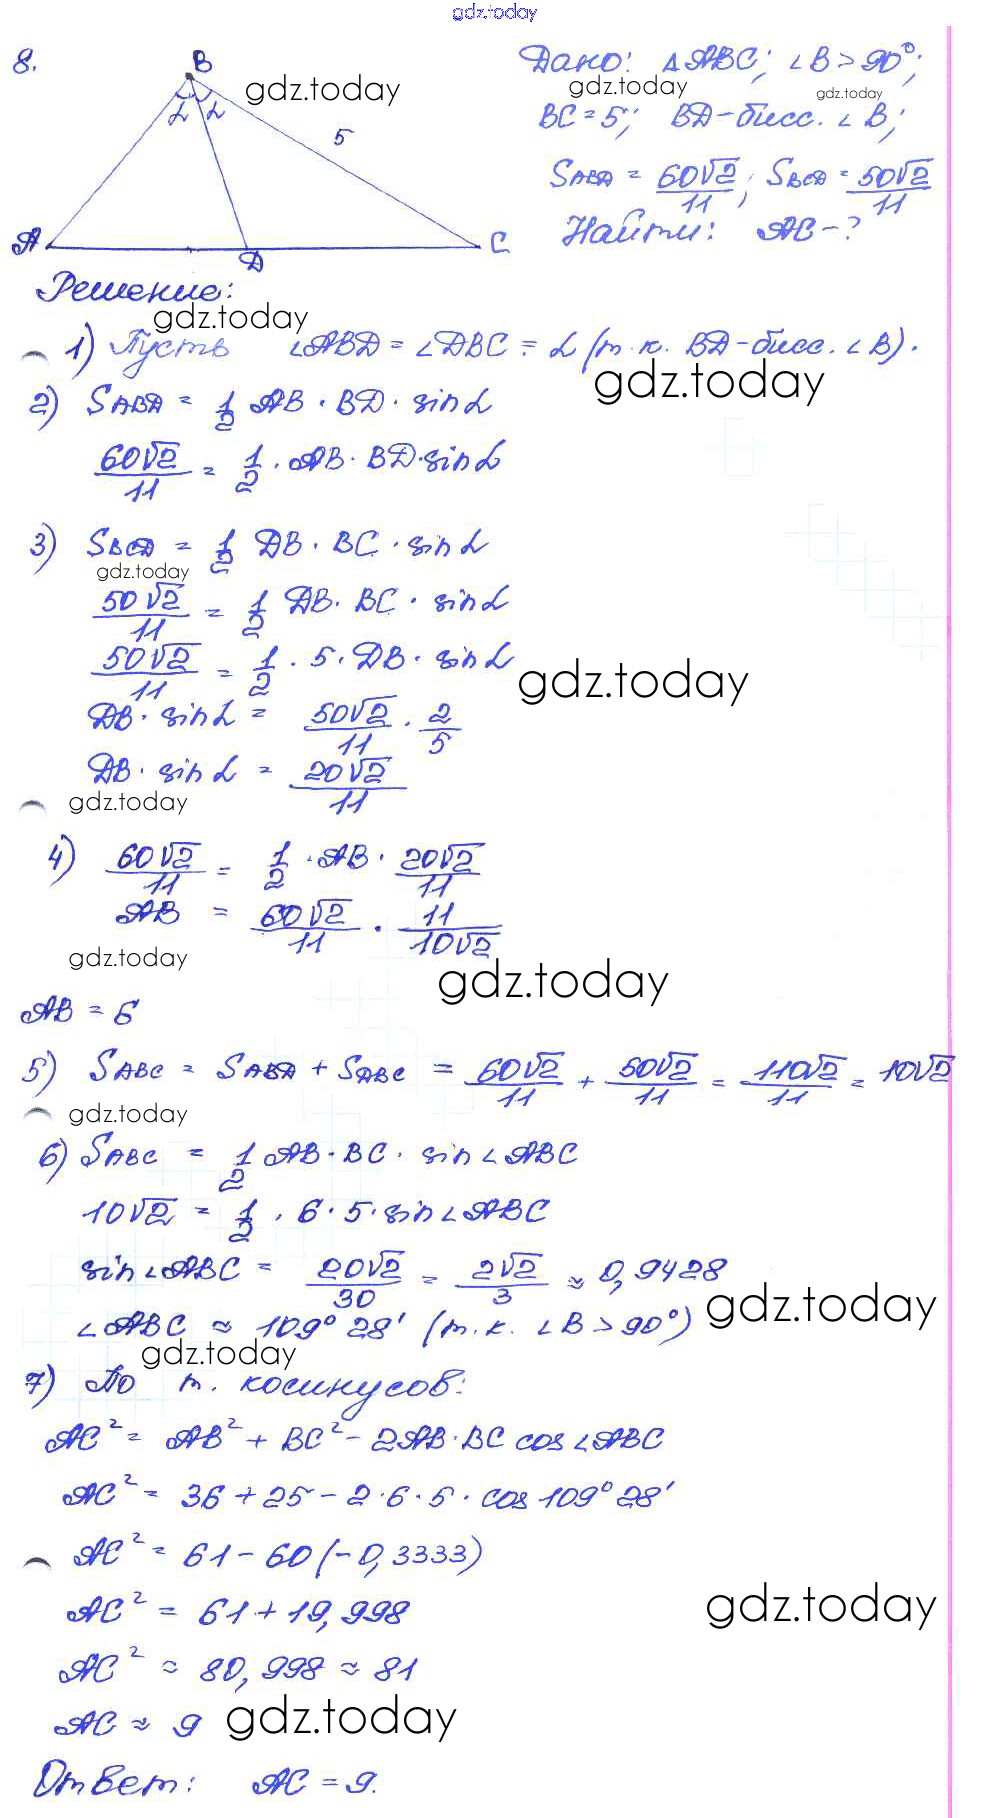 gdz.today
8.
B
gdz.today
α α
5
A
D
C
Дано: △ABC; ∠B > 90°;
gdz.today
gdz.today
BC = 5; BD - бисс. ∠B;
S_ABD = 60√2/11; S_BCD = 50√2/11
Найти: AC - ?
Решение:
gdz.today
1) Пусть ∠ABD = ∠DBC = α (т.к. BD - бисс. ∠B).
gdz.today
2) S_ABD = 1/2 AB · BD · sin α
60√2/11 = 1/2 · AB · BD · sin α
3) S_BCD = 1/2 DB · BC · sin α
gdz.today
50√2/11 = 1/2 DB · BC · sin α
50√2/11 = 1/2 · 5 · DB · sin α
gdz.today
DB · sin α = 50√2/11 · 2/5
DB · sin α = 20√2/11
gdz.today
4) 60√2/11 = 1/2 · AB · 20√2/11
AB = 60√2/11 · 11/10√2
gdz.today
gdz.today
AB = 6
5) S_ABC = S_ABD + S_DBC = 60√2/11 + 50√2/11 = 110√2/11 = 10√2
gdz.today
6) S_ABC = 1/2 AB · BC · sin ∠ABC
10√2 = 1/2 · 6 · 5 · sin ∠ABC
sin ∠ABC = 20√2/30 = 2√2/3 ≈ 0,9428
gdz.today
∠ABC ≈ 109° 28' (т.к. ∠B > 90°)
gdz.today
7) По т. косинусов:
AC² = AB² + BC² - 2AB · BC cos ∠ABC
AC² = 36 + 25 - 2 · 6 · 5 · cos 109° 28'
AC² = 61 - 60 (-0,3333)
AC² = 61 + 19,998
gdz.today
AC² ≈ 80,998 ≈ 81
AC ≈ 9
gdz.today
Ответ: AC = 9.